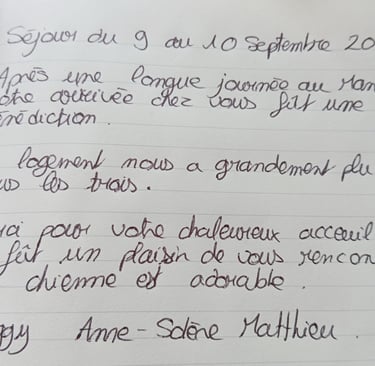 Séjour du 9 au 10 Septembre 20
Après une longue journée au Man
otre arrivée chez vous fût une
énédiction.
logement nous a grandement plu
us les trois.
ci pour votre chaleureux acceuil
fût un plaisir de vous rencon
chienne est adorable.
ggy Anne-Solène Matthieu.